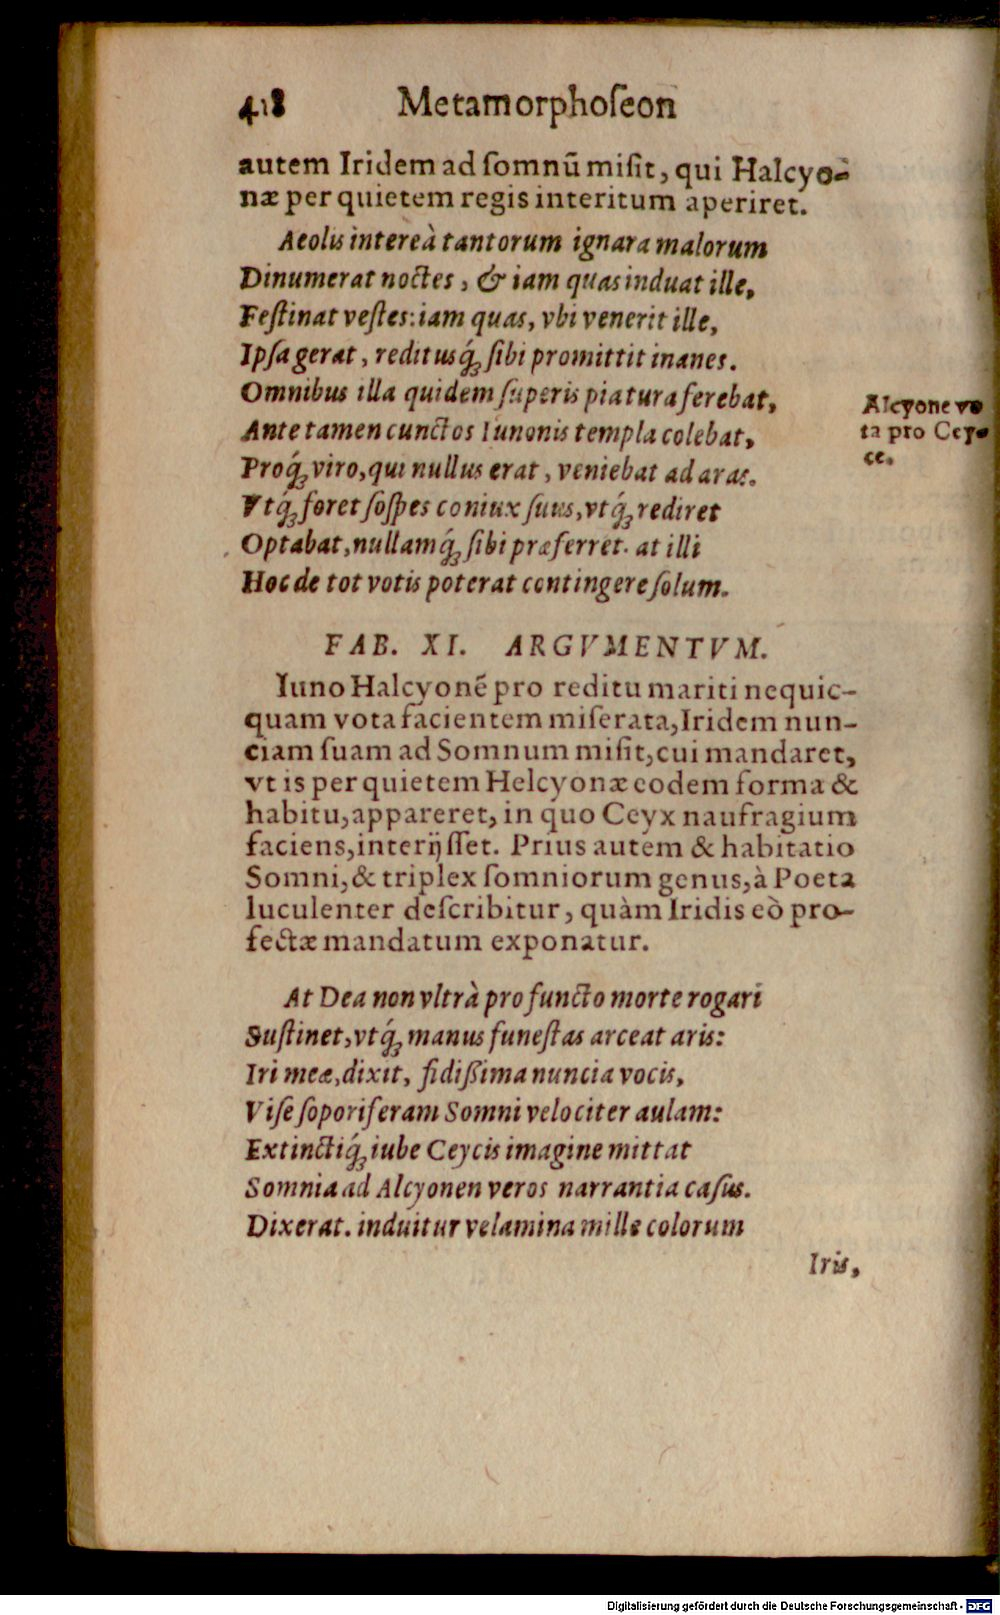 418 Metamorphoſeon
autem Iridem ad ſomnũ miſit, qui Halcyo-
næ per quietem regis interitum aperiret.
Aeolis intereà tantorum ignara malorum
Dinumerat noctes, & iam quas induat ille,
Feſtinat veſtes: iam quas, vbi venerit ille,
Ipſa gerat, reditusq́; ſibi promittit inanes.
Omnibus illa quidem ſuperis piatura ferebat,
Ante tamen cunctos Iunonis templa colebat,
Proq́; viro, qui nullus erat, veniebat ad aras.
Vtq́; foret ſoſpes coniux ſuus, vtq́; rediret
Optabat, nullamq́; ſibi præferret. at illi
Hoc de tot votis poterat contingere ſolum.
Alcyone vo-
ta pro Cey-
ce.
FAB. XI. ARGVMENTVM.
Iuno Halcyonẽ pro reditu mariti nequic-
quam vota facientem miſerata, Iridem nun-
ciam ſuam ad Somnum miſit, cui mandaret,
vt is per quietem Helcyonæ eodem forma &
habitu, appareret, in quo Ceyx naufragium
faciens, interijſſet. Prius autem & habitatio
Somni, & triplex ſomniorum genus, à Poeta
luculenter deſcribitur, quàm Iridis eò pro-
fectæ mandatum exponatur.
At Dea non vltrà pro functo morte rogari
Suſtinet, vtq́; manus funeſtas arceat aris:
Iri meæ, dixit, fidißima nuncia vocis,
Viſe ſoporiferam Somni velociter aulam:
Extinctiq́; iube Ceycis imagine mittat
Somnia ad Alcyonen veros narrantia caſus.
Dixerat. induitur velamina mille colorum
Iris,
Digitalisierung gefördert durch die Deutsche Forschungsgemeinschaft - DFG